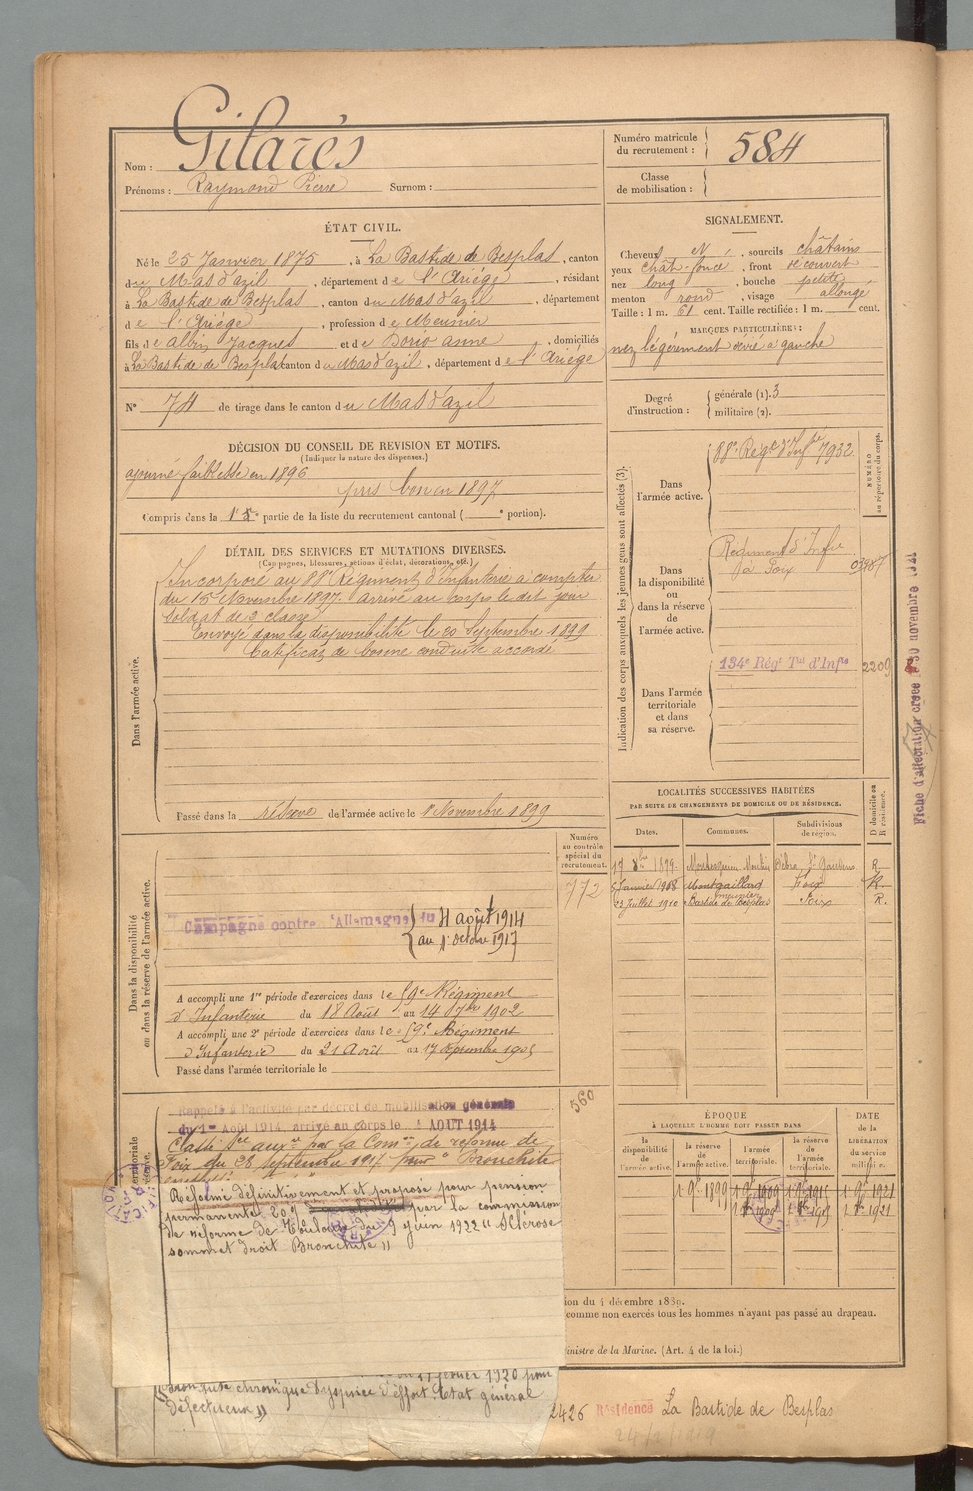 Nom : Gilarès
Prénoms : Raymond Pierre Surnom :
Numéro matricule
du recrutement : 584
Classe
de mobilisation :
ÉTAT CIVIL.
Né le 25 Janvier 1875, à La Bastide de Besplas, canton
du Mas d'azil, département de l'Ariège, résidant
à La Bastide de Besplas, canton du Mas d'azil, département
de l'Ariège, profession de Meunier
fils de Albin Jacques et de Dorio anne, domiciliés
à La Bastide de Besplas canton du Mas d'azil, département de l'Ariège
N° 74 de tirage dans le canton du Mas d'azil
SIGNALEMENT.
Cheveux N, sourcils châtains
yeux chât. foncé, front découvert
nez long, bouche petite
menton rond, visage allongé
Taille : 1 m. 61 cent. Taille rectifiée : 1 m. cent.
MARQUES PARTICULIÈRES :
nez légèrement dévié à gauche
Degré
d'instruction :
générale (1). 3
militaire (2).
DÉCISION DU CONSEIL DE REVISION ET MOTIFS.
(Indiquer la nature des dispenses.)
ajourné faiblesse en 1896
pris bon en 1897
Compris dans la 1e partie de la liste du recrutement cantonal ( e portion).
DÉTAIL DES SERVICES ET MUTATIONS DIVERSES.
(Campagnes, blessures, actions d'éclat, décorations, etc.)
Dans l'armée active.
Incorporé au 88e Régiment d'infanterie à compter
du 15 Novembre 1897. arrivé au corps le dit jour
soldat de 2 classe
Envoyé dans la disponibilité le 20 Septembre 1899
Certificat de bonne conduite accordé
Passé dans la réserve de l'armée active le 1 Novembre 1899
Indication des corps auxquels les jeunes gens sont affectés (3).
NUMÉRO
au répertoire du corps.
Dans
l'armée active.
88e Régt d'Infie 7932
Dans
la disponibilité
ou
dans la réserve
de
l'armée active.
Régiment d'Infie
de Foix
Dans l'armée
territoriale
et dans
sa réserve.
134e Régt Tal d'Infie 2209
Fiche d'affectation créée 30 novembre 1921
LOCALITÉS SUCCESSIVES HABITÉES
PAR SUITE DE CHANGEMENTS DE DOMICILE OU DE RÉSIDENCE.
Dates. Communes. Subdivisions
de région.
D domicile ou
R résidence.
17 8bre 1899 St Gaudens R.
5 Janvier 1908 Montgaillard Foix R.
23 Juillet 1910 Bastide de Besplas Foix R.
meunier
Dans la disponibilité
ou dans la réserve de l'armée active.
Numéro
au contrôle
spécial du
recrutement.
772
Campagne contre l'Allemagne du 4 août 1914
au 1 octbre 1917
A accompli une 1re période d'exercices dans le 59e Régiment
d'Infanterie du 18 Août au 14 7bre 1902
A accompli une 2e période d'exercices dans le 59e Régiment
d'Infanterie du 21 Août au 17 Septembre 1905
Passé dans l'armée territoriale le
560
Rappelé à l'activité par décret de mobilisation générale
du 1er Août 1914, arrivé au corps le 4 AOUT 1914
Classé Sce auxre par la Comon de réforme de
Foix du 28 septembre 1917 pour Bronchite
Réformé définitivement et proposé pour pension
permanente 20% par la commission
de réforme de Toulouse du 9 Juin 1922 "Sclérose
sommet droit Bronchite"
février 1920 pour
Bronchite chronique dyspnée d'effort Etat général
défectueux"
ÉPOQUE
À LAQUELLE L'HOMME DOIT PASSER DANS
DATE
de la
LIBÉRATION
du service
militaire.
la
disponibilité
de
l'armée active.
la réserve
de
l'armée active.
l'armée
territoriale.
la réserve
de
l'armée
territoriale.
1 9bre 1899 1 9bre 1909 1 9bre 1915 1 9bre 1921
ion du 4 décembre 1889.
comme non exercés tous les hommes n'ayant pas passé au drapeau.
Ministre de la Marine. (Art. 4 de la loi.)
2426 Résidence La Bastide de Besplas